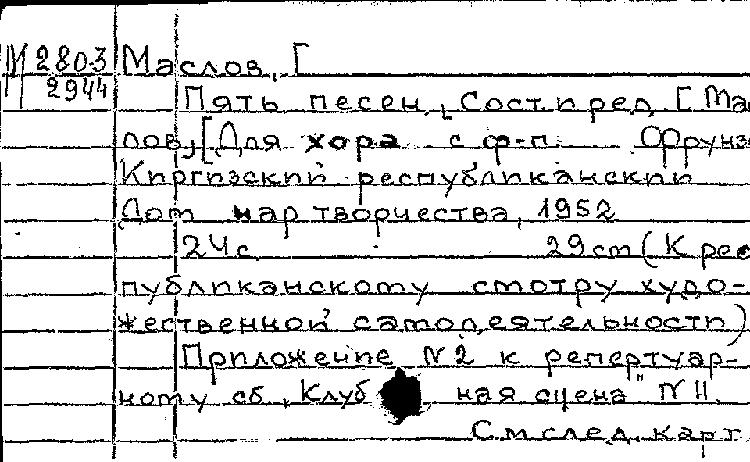 М 2803 Маслов, [
2944
Пять песен, [Сост. и ред. [Мас
лов, [Для хора с ф-п. Фрунзе
Киргизский республиканский
Дом нар творчества, 1952
24 с. 29 cm (К рес
публиканскому смотру худо-
жественной самодеятельности)
Приложение №2 к репертуар-
ному сб. „Клуб ная сцена" № 11.
См след. карт.